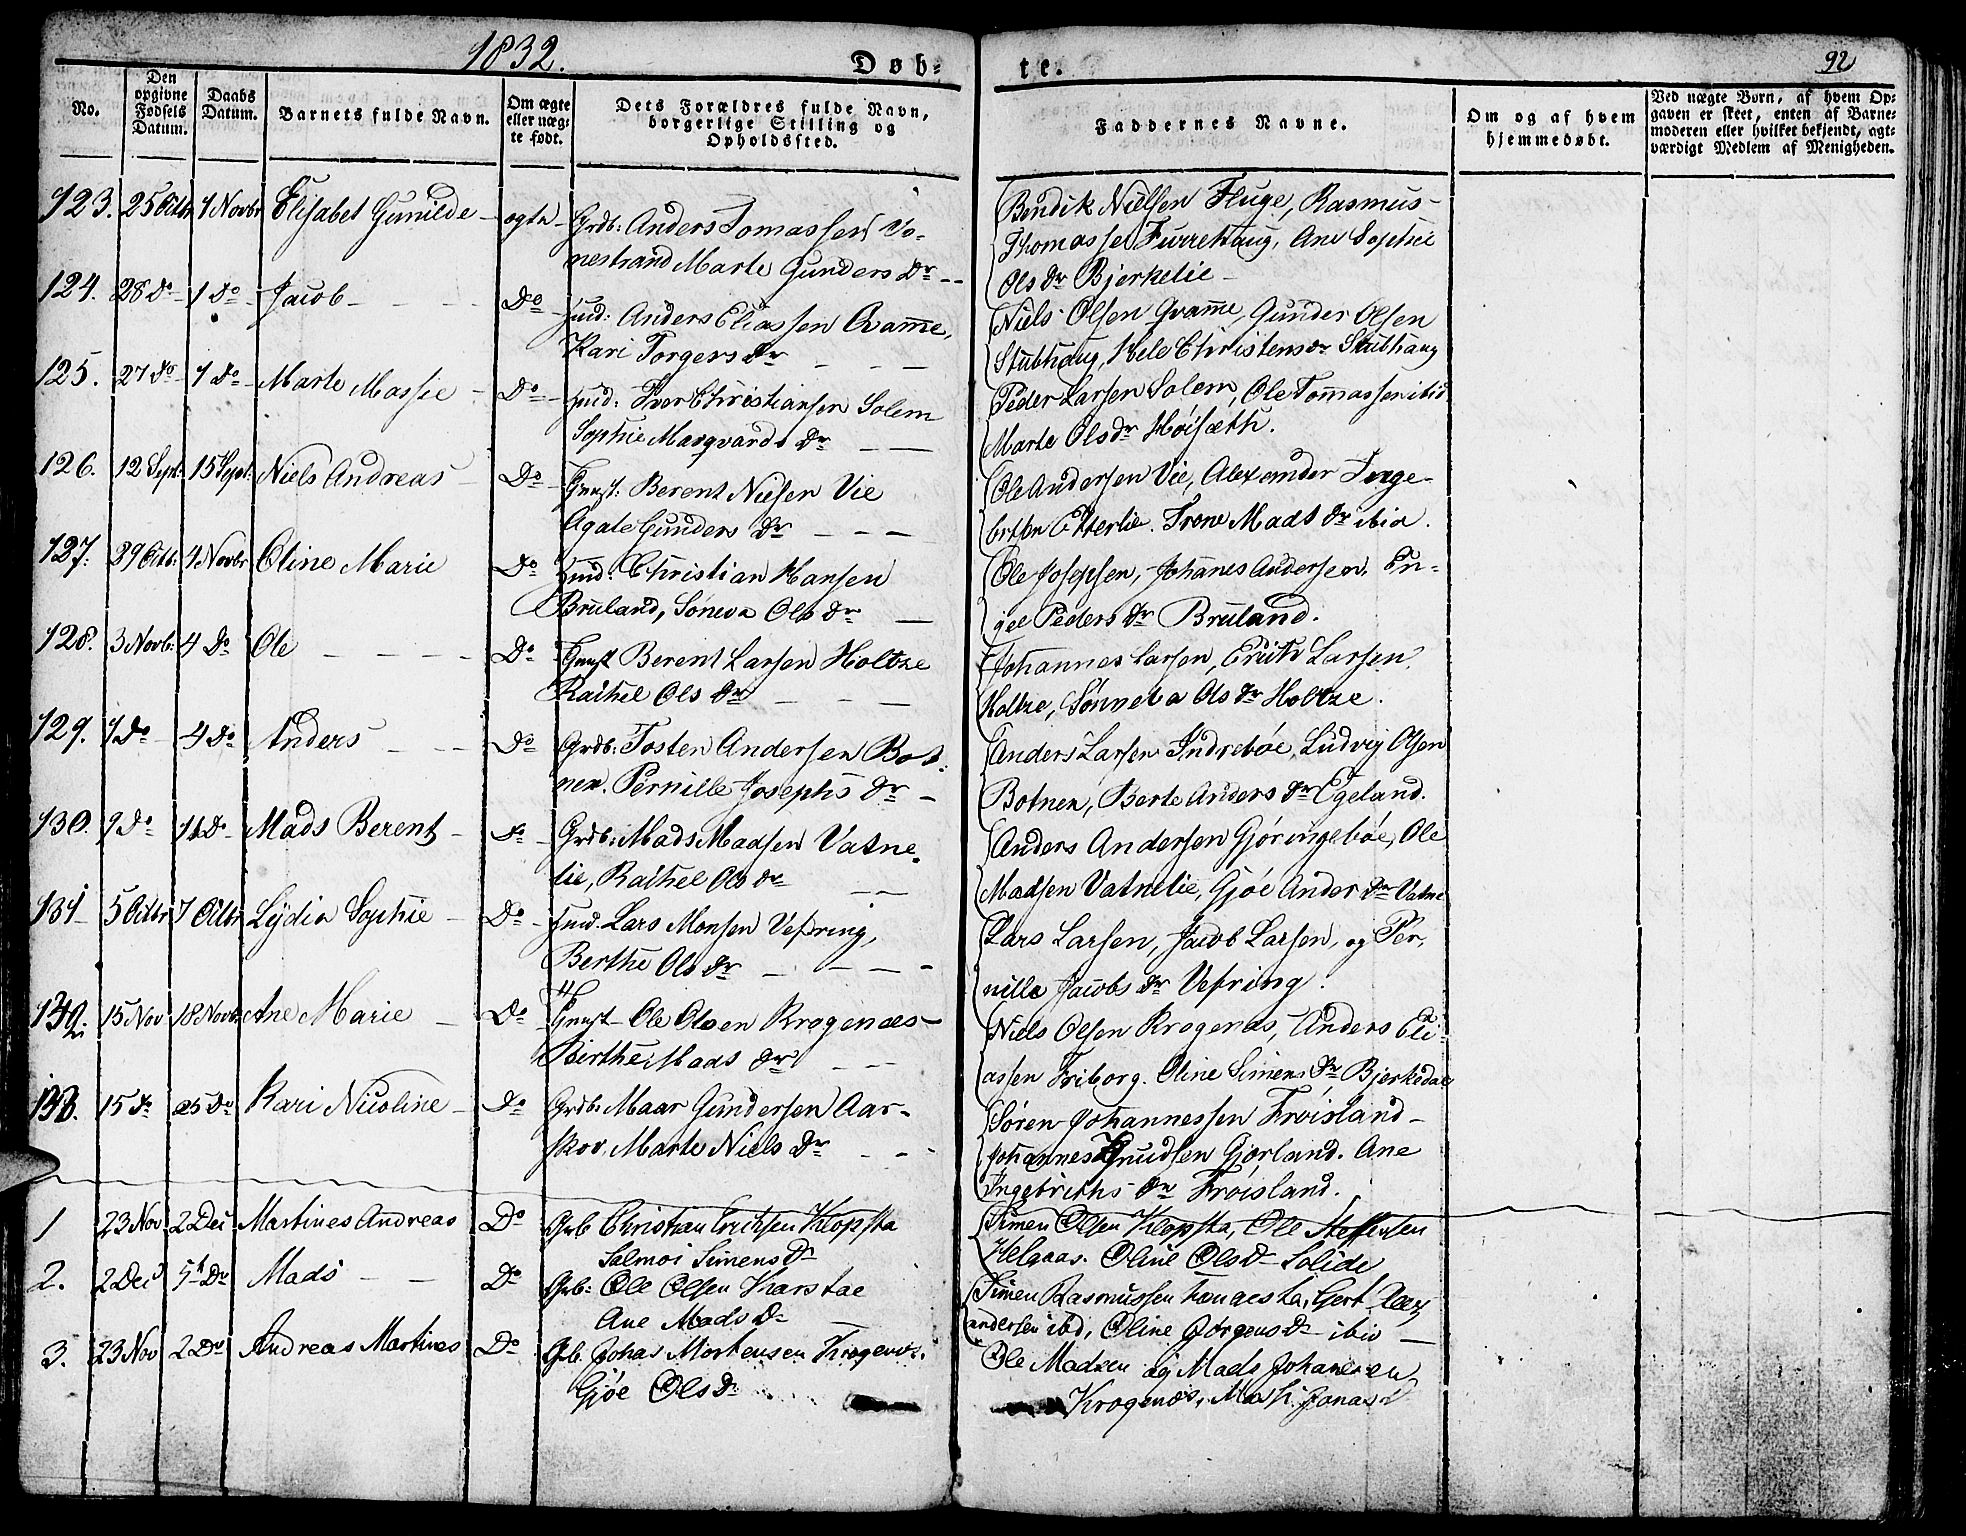 1832.
Døb-
te.
92
No.
Den opgivne Fødsels Datum.
Daabs Datum.
Barnets fulde Navn.
Om ægte eller uægte født.
Dets Forældres fulde Navn, borgerlige Stilling og Opholdssted.
Faddernes Navne.
Om og af hvem hjemmedøbt.
Ved uægte Børn, af hvem Opgaven er skeet, enten af Barnemoderen eller hvilket bekjendt, agtværdigt Medlem af Menigheden.
123. 25 Octbr 1 Novbr Elisabet Gunilde - ægte - Grdb: Anders Tomassen Vo-
nestrand Marte Gunders Dr - -
Bendik Nielsen Fluge, Rasmus
Thomassen Furrehaug, Ane Sophie
Ols Dr Bjerkelie -
124. 28 Do 1 Do Jacob - Do - Huud: Anders Eliassen Qvamme,
Kari Torgers Dr - - -
Niels Olsen Qvamme, Gunder Olsen
Stubhaug, Christens Dr Stubhaug
125. 27 Do 1 Do Marte Massie - Do - Huud: Iver Christiansen Solem
Sophie Marqvards Dr - -
Peder Larsen Solem, Ole Tommassen ibid
Marte Ols Dr Høisæth.
126. 12 Sept 15 Sept: Niels Andreas - Do - Huust: Berent Nielsen Vie
Agate Gunders Dr - - -
Ole Andersen Vie, Alexander Inge-
Etterlie. Trone Mads Dr ibid.
127. 29 Octb: 4 Novbr Oline Marie Do - Huud: Christian Hansen
Bruland, Søneva Ols Dr -
Ole Josepsen, Johanes Andersen, In-
Peders Dr Bruland.
128. 3 Novb: 4 Do Ole - - - Do - Huust Berent Larsen Holtze
Rachel Ols Dr - - -
Johannes Larsen, Larsen
Holtze, Sønneva Ols Dr Holtze.
129. 1 Do 4 Do Anders - - Do Grdb: Tosten Andersen Bot-
nen. Pernille Josephs Dr -
Anders Larsen Indrebøe, Ludvig Olsen
Botnen, Berte Anders Dr Egeland.
130. 9 Do 11 Do Mads Berent - Do - Grdb: Mads Madsen Vatne-
lie, Rachel Ols Dr - -
Anders Andersen Gjøringebøe, Ole
Madsen Vatnelie, Gjøe Anders Dr Vatne
131 5 Octbr 7 Octbr Lydia Sophie - Do - Huud. Lars Monsen Vefring,
Berthe Ols Dr - - -
Lars Larsen, Jacob Larsen, og Per-
nille Jacobs Dr Vefring.
132. 15 Nov 18 Novbr Ane Marie - Do - Huust - Ole Olsen Krogenæs -
Birthe Mads Dr - -
Niels Olsen Krogenæs, Anders Eli-
assen Friborg. Oline Simens Dr Bjerkedal
133. 15 Do 25 Do Kari Nicoline - Do Grdb: Gundersen Aar-
skov, Marte Niels Dr - - -
Søren Johannessen Frøisland -
Johannes Knudsen Gjørland. Ane
Ingebriths Dr Frøisland.
1 23 Nov 2 Dec Martines Andreas Do Grb Christian Erichsen Klopsta
Salmoi Simens Dr
Simen Olsen Klopsta, Ole Steffensen
Helgaas. Oline Ols D - Solide
2. 2 Dec 5t Do Mads - - Do Grb: Ole Olsen Karstae
Ane Mads D -
Simen Rasmussen Gert Alex-
andersen ibd, Oline Jørgens D - ibid -
3. 23 Nov 2 Do Andreas Martines Do Grb. Johas Mortensen Krogenæs.
Gjøe Ols Dr
Ole Madsen og Mads Johannesen
Krogenæs, Jonas D